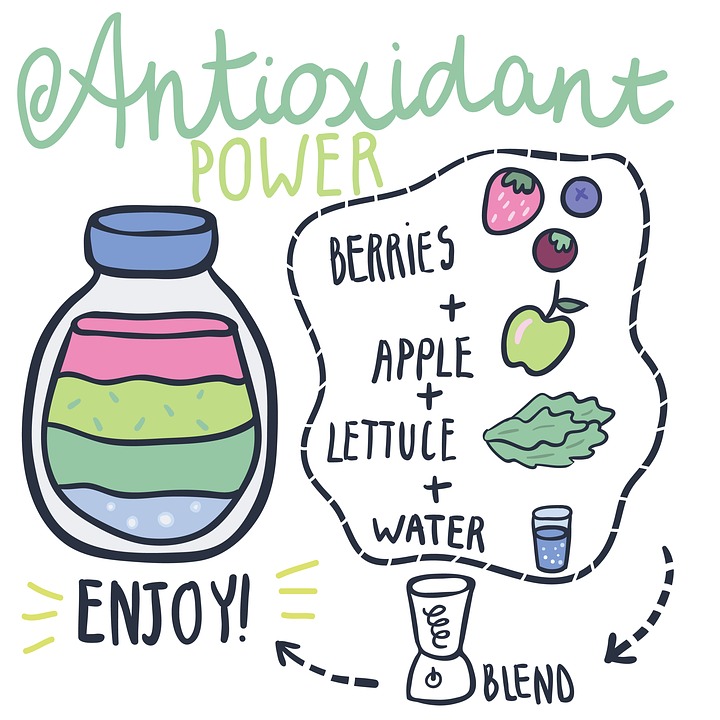 Antioxidant
POWER
BERRiES
+
APPLE
+
LETTUCE
+
WATER
BLEND
ENJOY!